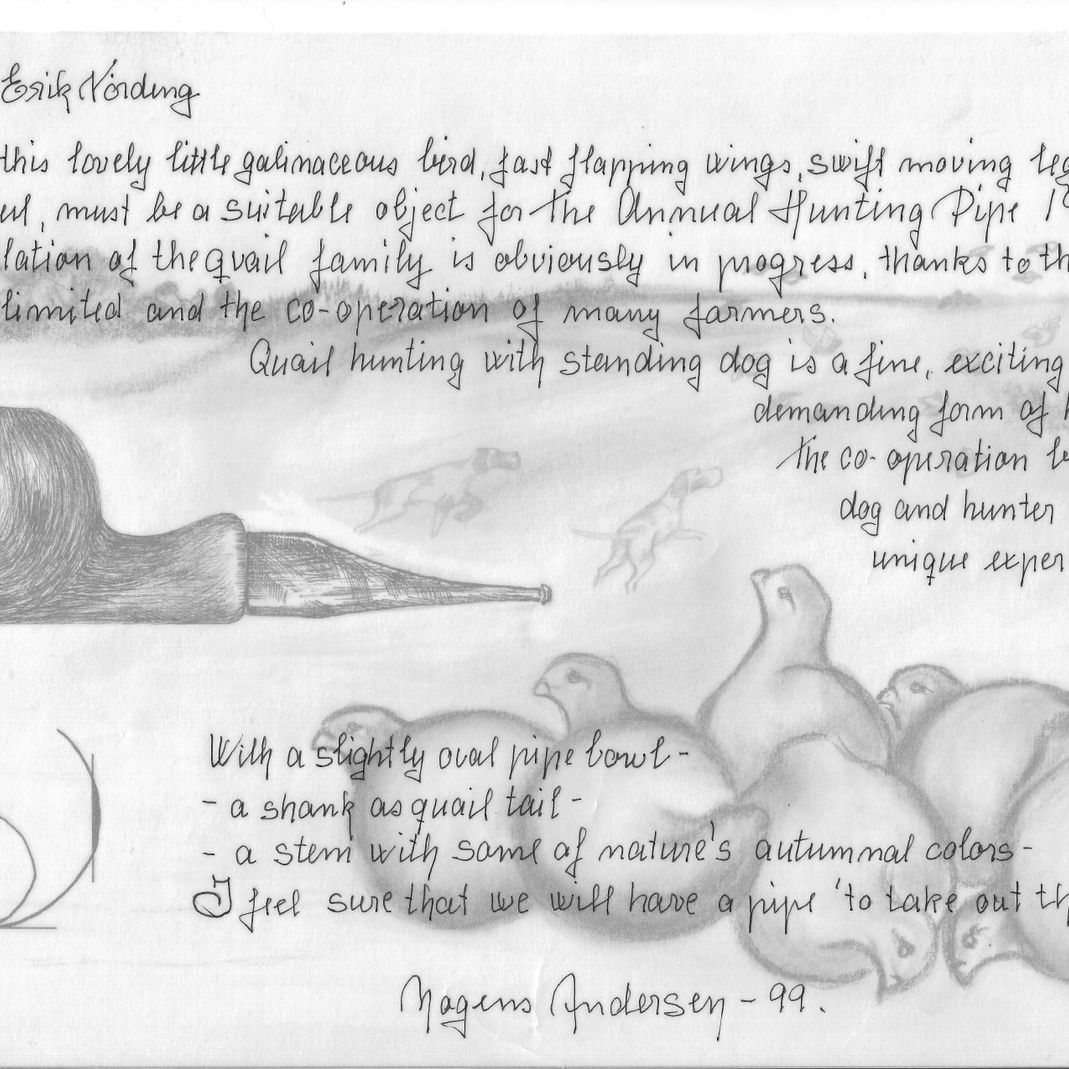 Erik Nørding
this lovely little galinaceous bird, fast flapping wings, swift moving leg
ul, must be a suitable object for the Annual Hunting Pipe 19
lation of the quail family is obviously in progress, thanks to th
limited and the co-operation of many farmers.
Quail hunting with standing dog is a fine, exciting
demanding form of h
the co-operation be
dog and hunter
unique exper
With a slightly oval pipe bowl -
- a shank as quail tail -
- a stem with some of nature's autumnal colors -
I feel sure that we will have a pipe 'to take out th
Mogens Andersen - 99.